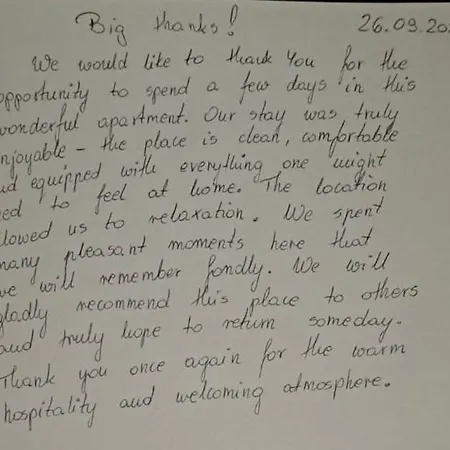 Big thanks! 26.09.20
We would like to thank You for the
opportunity to spend a few days in this
wonderful apartment. Our stay was truly
enjoyable – the place is clean, comfortable
and equipped with everything one might
need to feel at home. The location
allowed us to relaxation. We spent
many pleasant moments here that
we will remember fondly. We will
gladly recommend this place to others
and truly hope to return someday.
Thank you once again for the warm
hospitality and welcoming atmosphere.